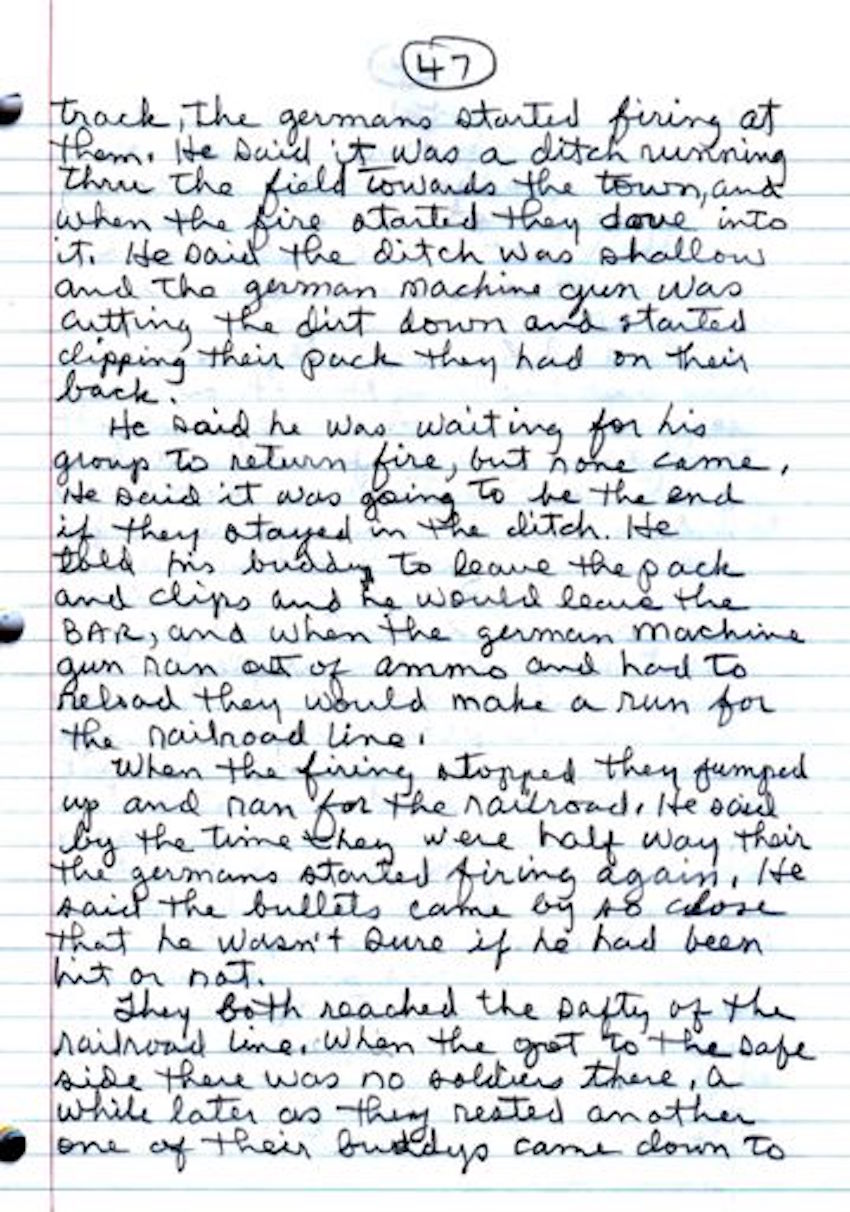 47
track, the germans started firing at
them. He said it was a ditch running
thru the field towards the town, and
when the fire started they dove into
it. He said the ditch was shallow
and the german machine gun was
cutting the dirt down and started
clipping their pack they had on their
back.
He said he was waiting for his
group to return fire, but none came.
He said it was going to be the end
if they stayed in the ditch. He
told his buddy to leave the pack
and clips and he would leave the
BAR, and when the german machine
gun ran out of ammo and had to
reload they would make a run for
the railroad line.
When the firing stopped they jumped
up and ran for the railroad. He said
by the time they were half way their
the germans started firing again. He
said the bullets came by so close
that he wasn't sure if he had been
hit or not.
They both reached the safty of the
railroad line. When the got to the safe
side there was no soldiers there, a
while later as they rested another
one of their buddys came down to